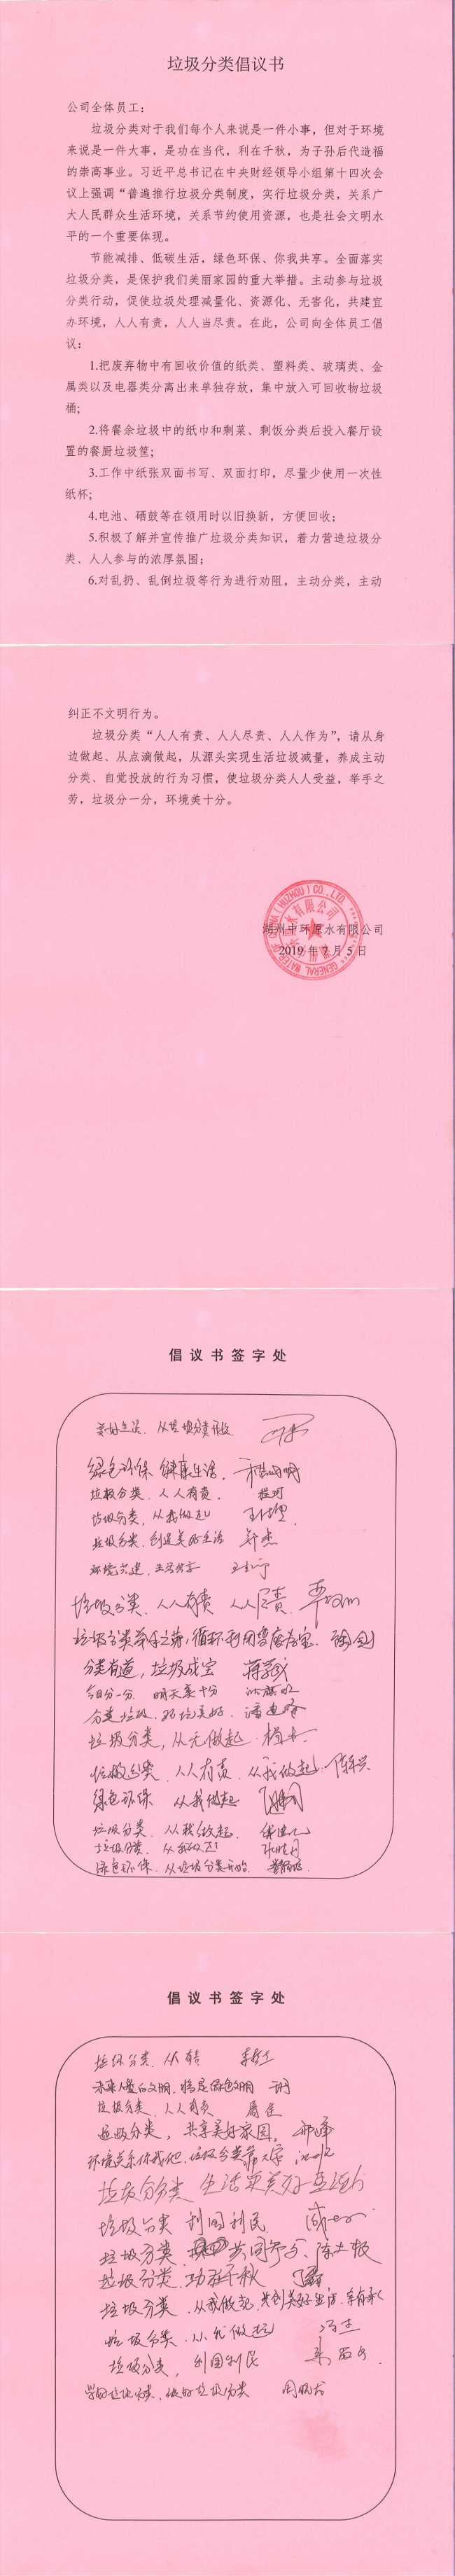 垃圾分类倡议书
公司全体员工：
垃圾分类对于我们每个人来说是一件小事，但对于环境
来说是一件大事，是功在当代，利在千秋，为子孙后代造福
的崇高事业。习近平总书记在中央财经领导小组第十四次会
议上强调“普遍推行垃圾分类制度，实行垃圾分类，关系广
大人民群众生活环境，关系节约使用资源，也是社会文明水
平的一个重要体现。
节能减排、低碳生活，绿色环保、你我共享。全面落实
垃圾分类，是保护我们美丽家园的重大举措。主动参与垃圾
分类行动，促使垃圾处理减量化、资源化、无害化，共建宜
办环境，人人有责，人人当尽责。在此，公司向全体员工倡
议：
1.把废弃物中有回收价值的纸类、塑料类、玻璃类、金
属类以及电器类分离出来单独存放，集中放入可回收物垃圾
桶;
2.将餐余垃圾中的纸巾和剩菜、剩饭分类后投入餐厅设
置的餐厨垃圾筐;
3.工作中纸张双面书写、双面打印，尽量少使用一次性
纸杯;
4.电池、硒鼓等在领用时以旧换新，方便回收;
5.积极了解并宣传推广垃圾分类知识，着力营造垃圾分
类、人人参与的浓厚氛围;
6.对乱扔、乱倒垃圾等行为进行劝阻，主动分类，主动
纠正不文明行为。
垃圾分类“人人有责、人人尽责、人人作为”，请从身
边做起、从点滴做起，从源头实现生活垃圾减量，养成主动
分类、自觉投放的行为习惯，使垃圾分类人人受益，举手之
劳，垃圾分一分，环境美十分。
GENERAL WATER OF CHINA (HUZHOU) CO.,LTD
湖州中环原水有限公司
2019 年 7 月 5 日
倡议书签字处
美好生活、从垃圾分类开始
绿色环保 健康生活
垃圾分类，人人有责。
垃圾分类，从我做起
垃圾分类，创造美好生活
环境共建，生态共享
垃圾分类，人人有责 人人尽责
垃圾分类举手之劳，循环利用变废为宝
分类有道，垃圾成宝
今日分一分 明天美十分
分类垃圾，环境美好
垃圾分类，从我做起
垃圾分类 人人有责 从我做起
绿色环保 从我做起
垃圾分类 从我做起
垃圾分类 从我做起
绿色环保，从垃圾分类开始
倡议书签字处
垃圾分类，从
未来人类的文明，将是绿色文明
垃圾分类，人人有责
垃圾分类，共享美好家园。
垃圾分类 生活更美好
垃圾分类 利国利民
垃圾分类 共同参与
垃圾分类 功在千秋
垃圾分类，从我做起，共创美好生活
垃圾分类，从我做起
垃圾分类，利国利民
垃圾分类